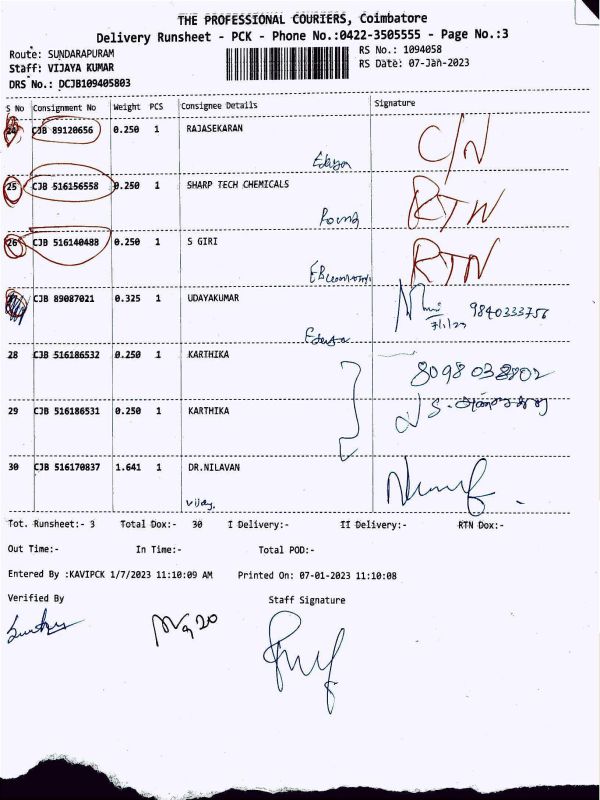 THE PROFESSIONAL COURIERS, Coimbatore
Delivery Runsheet - PCK - Phone No.:0422-3505555 - Page No.:3
Route: SUNDARAPURAM
RS No.: 1094058
Staff: VIJAYA KUMAR
RS Date: 07-Jan-2023
DRS No.: DCJB109405803
S No Consignment No Weight PCS Consignee Details Signature
24 CJB 89120656 0.250 1 RAJASEKARAN C/N
25 CJB 516156558 0.250 1 SHARP TECH CHEMICALS RTN
26 CJB 516140488 0.250 1 S GIRI RTN
CJB 89087021 0.325 1 UDAYAKUMAR 9840333756
7/1/23
28 CJB 516186532 0.250 1 KARTHIKA 8098038802
29 CJB 516186531 0.250 1 KARTHIKA
30 CJB 516170837 1.641 1 DR.NILAVAN
Vijay.
Tot. Runsheet:- 3 Total Dox:- 30 I Delivery:- II Delivery:- RTN Dox:-
Out Time:- In Time:- Total POD:-
Entered By :KAVIPCK 1/7/2023 11:10:09 AM Printed On: 07-01-2023 11:10:08
Verified By Staff Signature